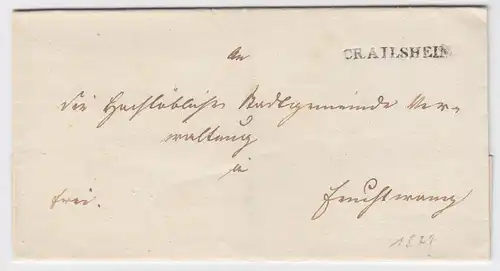 CRAILSHEIM
An
die Hochlöbliche Stadtgemeinde Ver=
waltung
in
frei.
Feuchtwang
1829